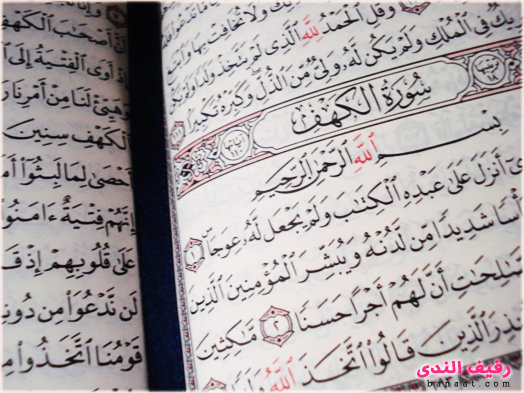 وَقُلِ الْحَمْدُ لِلَّهِ الَّذِي لَمْ يَتَّخِذْ وَلَدًا وَلَمْ يَكُن
فِي الْمُلْكِ وَلَمْ يَكُن لَّهُ وَلِيٌّ مِّنَ الذُّلِّ وَكَبِّرْهُ تَكْبِيرًا ١١١
سُورَةُ الْكَهْفِ
بِسْمِ اللَّهِ الرَّحْمَٰنِ الرَّحِيمِ
أَنزَلَ عَلَىٰ عَبْدِهِ الْكِتَابَ وَلَمْ يَجْعَل لَّهُ عِوَجًا ١
بَأْسًا شَدِيدًا مِّن لَّدُنْهُ وَيُبَشِّرَ الْمُؤْمِنِينَ الَّذِينَ
أَنَّ لَهُمْ أَجْرًا حَسَنًا ٢ مَّاكِثِينَ
الَّذِينَ قَالُوا اتَّخَذَ اللَّهُ وَلَدًا
أَنَّ أَصْحَابَ الْكَهْفِ
إِذْ أَوَى الْفِتْيَةُ إِلَى
وَهَيِّئْ لَنَا مِنْ أَمْرِنَا
الْكَهْفِ سِنِينَ
أَحْصَىٰ لِمَا لَبِثُوا
إِنَّهُمْ فِتْيَةٌ آمَنُوا
عَلَىٰ قُلُوبِهِمْ إِذْ
لَن نَّدْعُوَ مِن دُونِهِ
قَوْمُنَا اتَّخَذُوا مِن
رفيف الندى
banaat.com